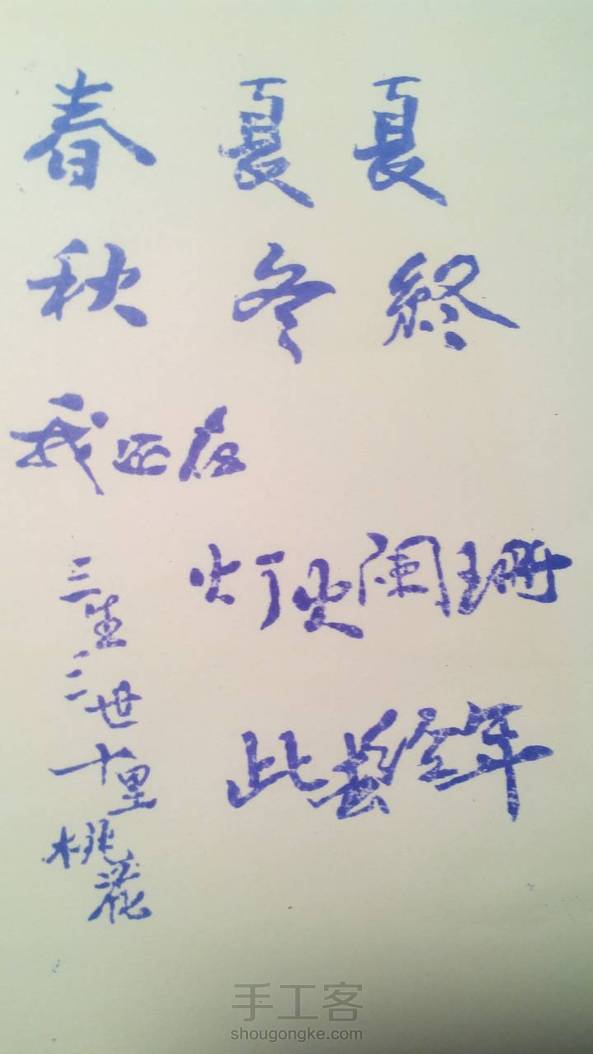 春 夏 夏
秋 冬 終
我还在
灯火阑珊
此去经年
三生三世十里桃花
手工客
shougongke.com